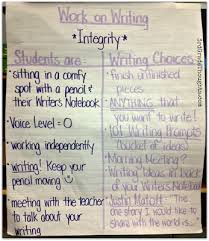 Work on Writing
*Integrity*
Students are:
• sitting in a comfy
spot with a pencil &
their Writers Notebook
• Voice Level = 0
• working independently
• writing! Keep your
pencil moving
• meeting with the teacher
to talk about your
writing
Writing Choices:
• Finish unfinished
pieces
• ANYTHING that
you want to write!
• 101 Writing Prompts
(bucket of ideas)
• Morning Meeting?
• Writing Ideas in back
of your Writers Notebook
• Justin Matott - "The
one story I would like to
share with the world is..."